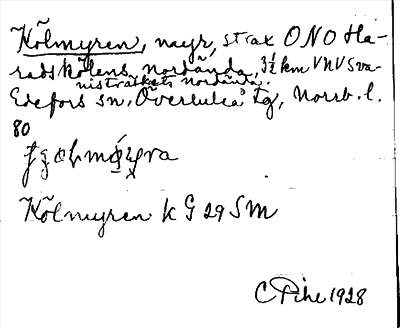 Kölmyren, myr, strax ONO Ha-
radskölens nordända, 3½ km VNV Sva-
nisträskets nordända.
Edefors sn, Överluleå tg, Norrb. l.
80
Kölmyren k G 29 SM
C Pihl 1928